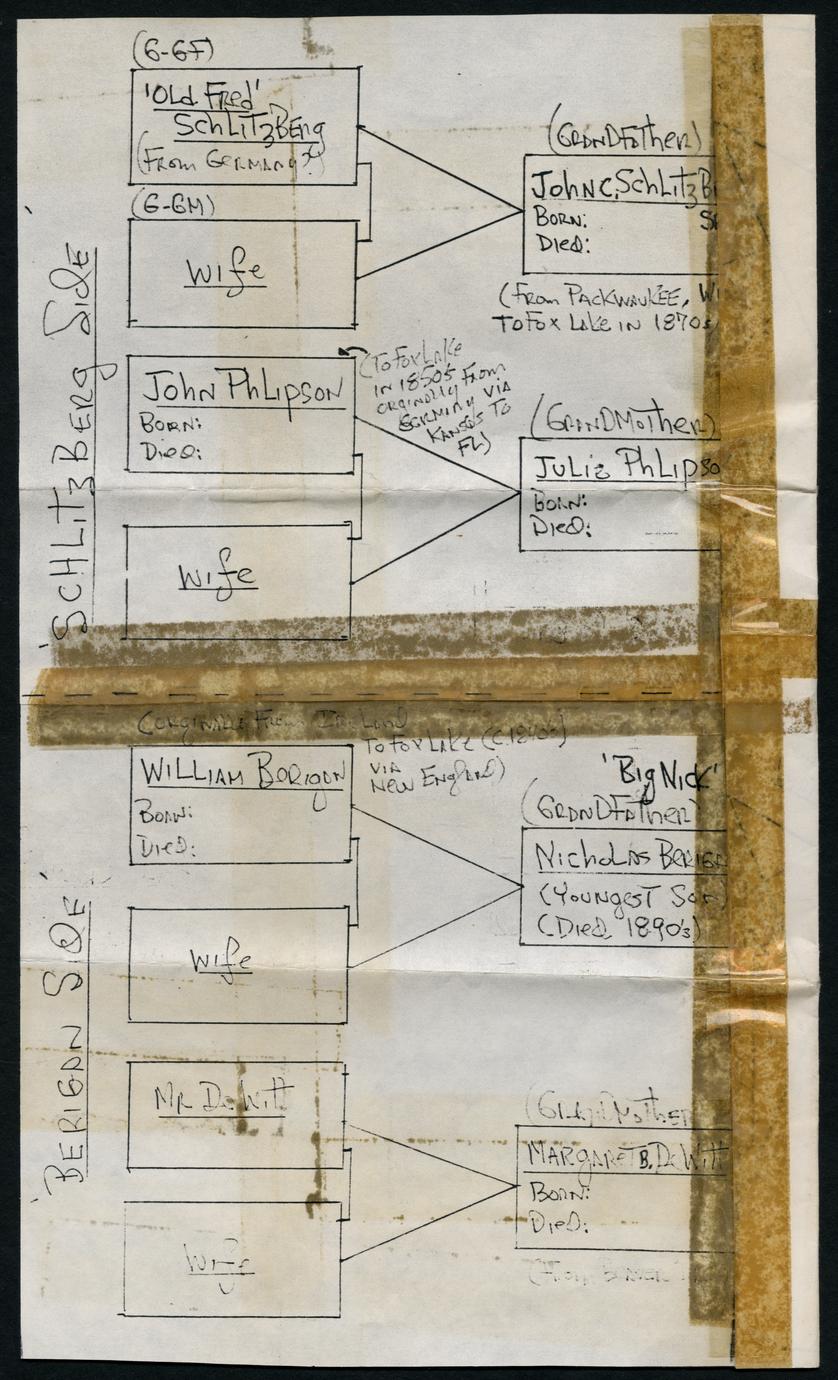 'SCHLITZBERG SIDE
(G-GF)
'OLD FRED'
SCHLITZBERG
(FROM GERMANY?)
(G-GM)
WIFE
(GRANDFATHER)
JOHN C. SCHLITZB
BORN:
DIED:
(FROM PACKWAUKEE, WI
TO FOX LAKE IN 1870s
JOHN PHLIPSON
BORN:
DIED:
(TO FOX LAKE
IN 1850S
ORGINALLY FROM
GERMANY VIA
KANSAS TO
FL)
WIFE
(GRANDMOTHER)
JULIA PHLIPSO
BORN:
DIED:
'BERIGAN SIDE'
(ORGINALLY FROM IRELAND
TO FOX LAKE
VIA
NEW ENGLAND)
WILLIAM BORIGAN
BORN:
DIED:
WIFE
'BIG NICK'
(GRANDFATHER)
NICHOLAS BERIGA
(YOUNGEST SON
(DIED 1890's)
MR DEWITT
WIFE
(GRANDMOTHER
MARGARET B. DEWITT
BORN:
DIED:
(FROM